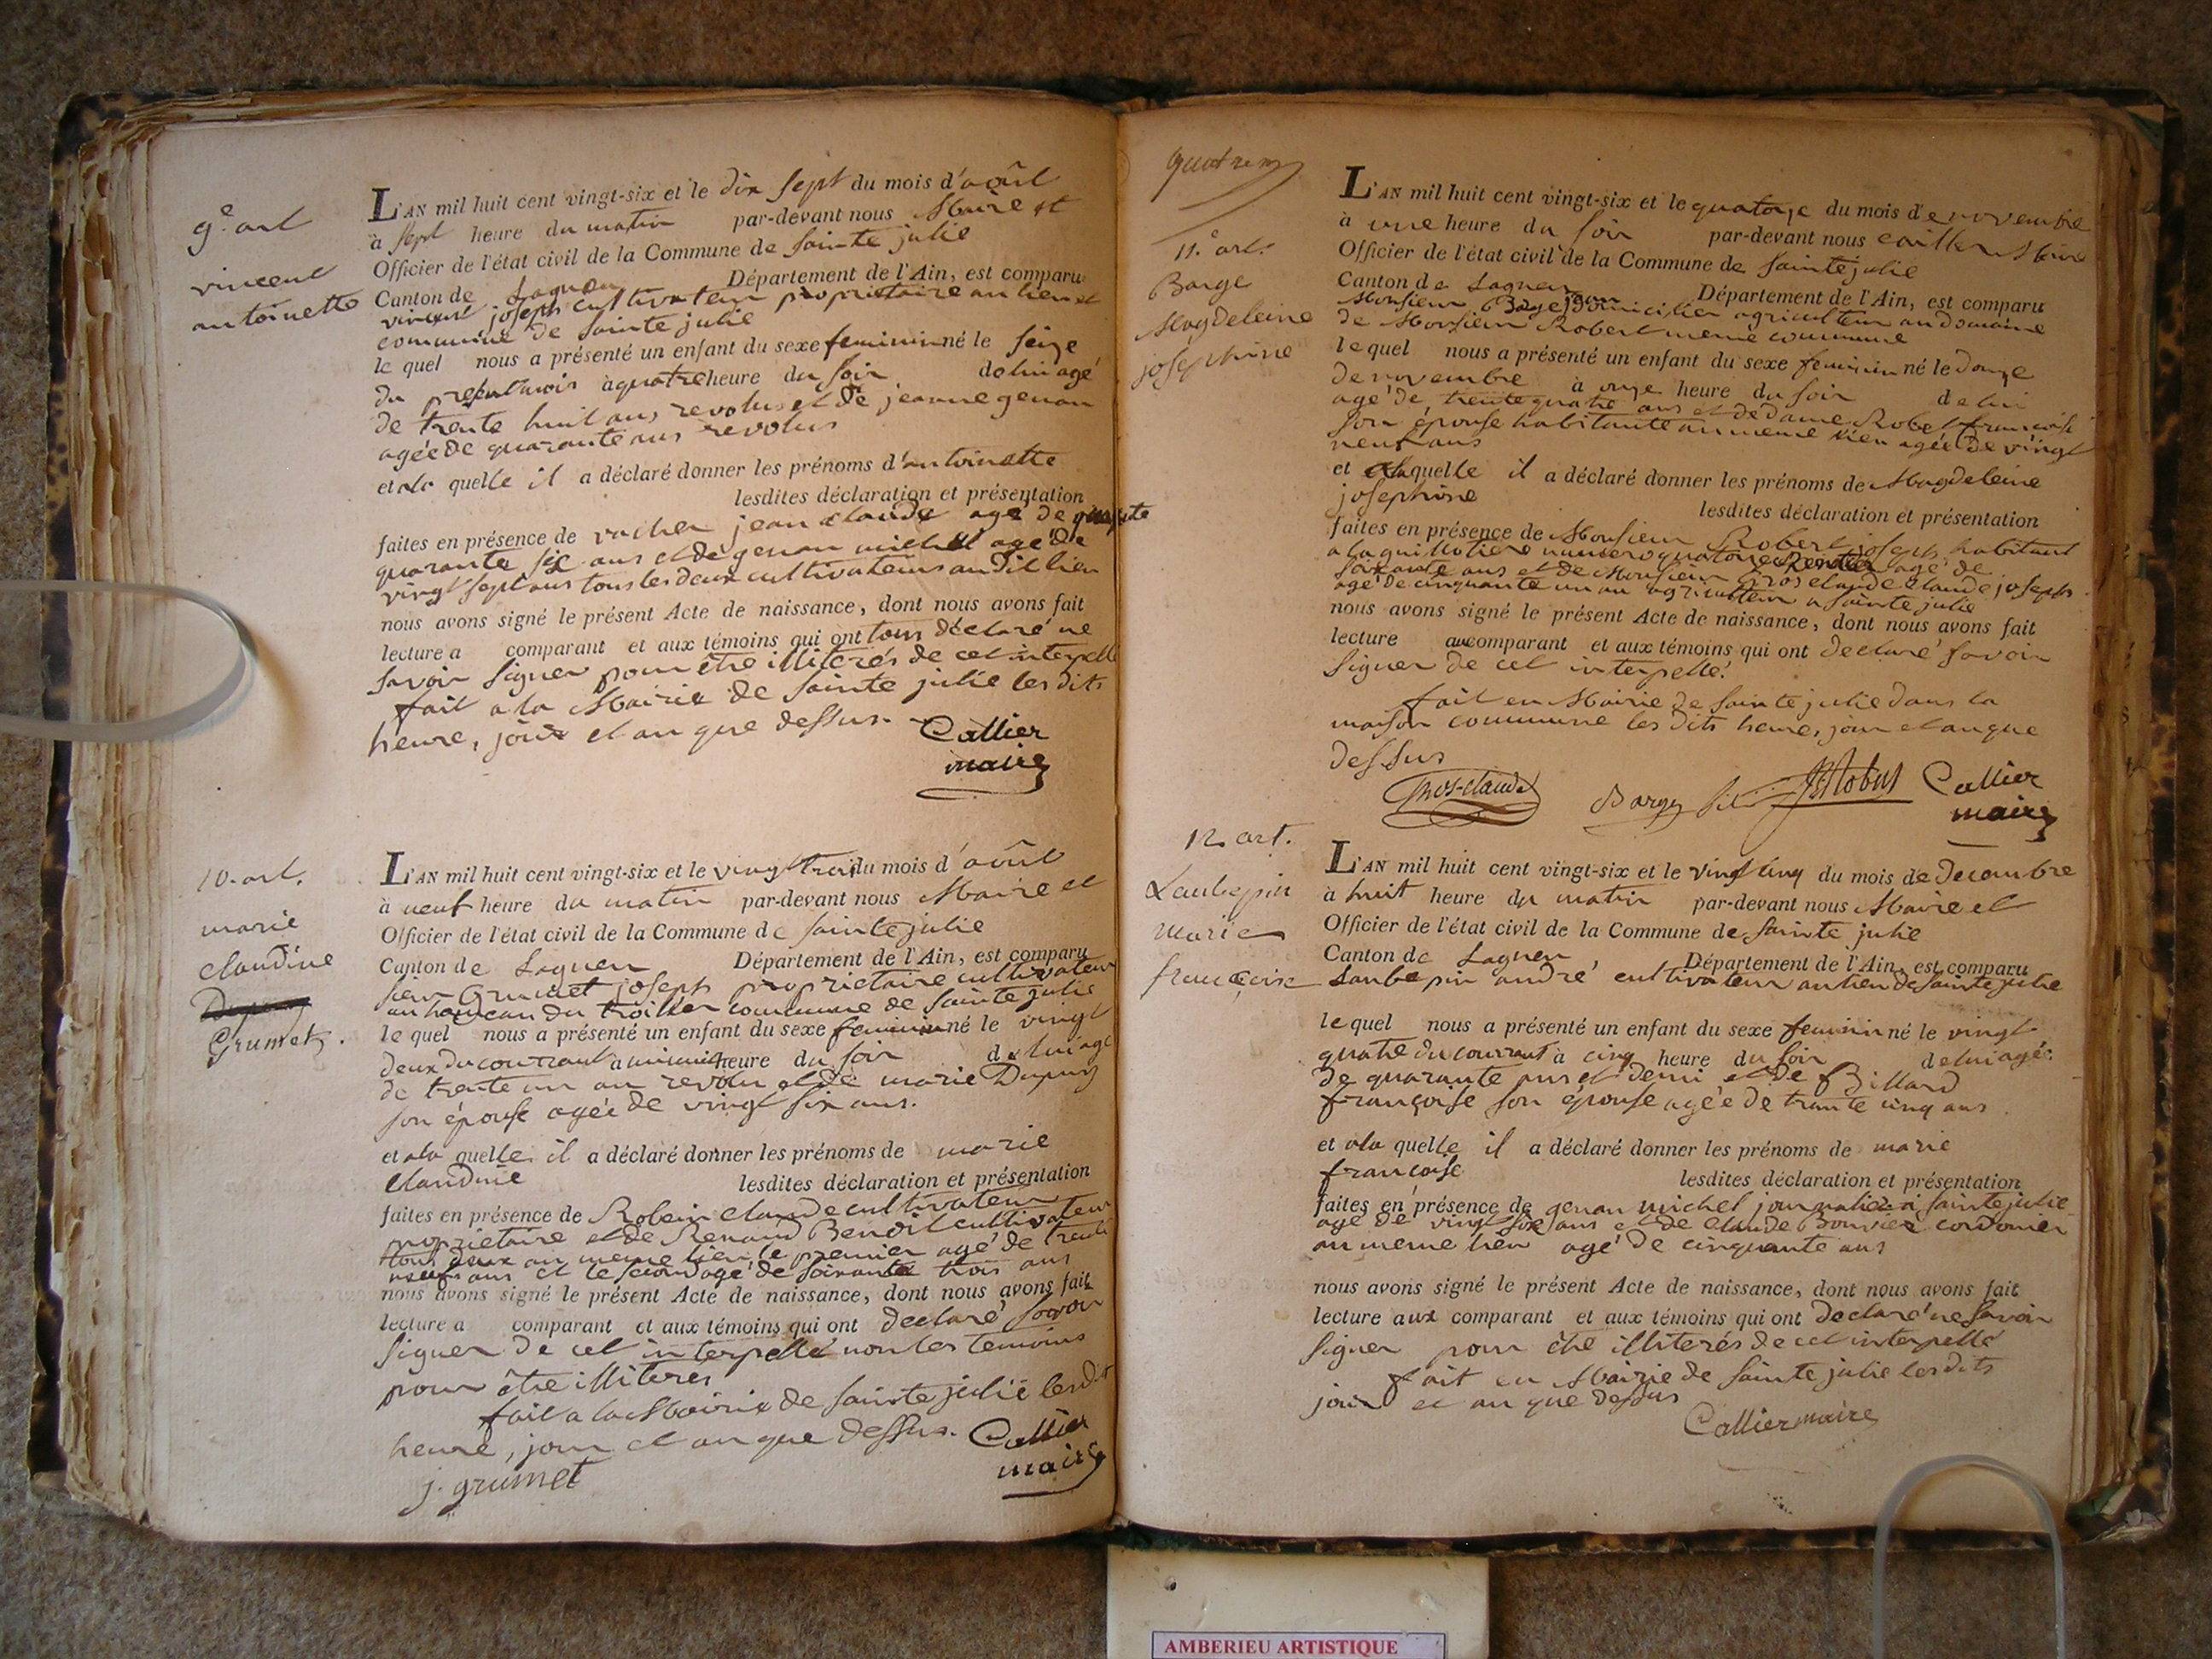 9.e art
vincent
antoinette
L'AN mil huit cent vingt-six et le dix sept du mois d'août
à sept heure du matin par-devant nous Maire et
Officier de l'état civil de la Commune de sainte julie
Canton de Lagneu Département de l'Ain, est comparu
vincent joseph cultivateur proprietaire au lieu et
commune de sainte julie
le quel nous a présenté un enfant du sexe feminin né le seize
du present mois à quatre heure du soir de lui agé
de trente huit ans revolus et de jeanne genan
agée de quarante ans revolus
et a la quelle il a déclaré donner les prénoms d'antoinette
lesdites déclaration et présentation
faites en présence de vacher jean claude agé de
quarante six ans et de genan michel agé de
vingt sept ans tous les deux cultivateurs au dit lieu
nous avons signé le présent Acte de naissance, dont nous avons fait
lecture a comparant et aux témoins qui ont tous déclaré ne
savoir signer pour être illiterés de cel interpellé
fait a la Mairie de sainte julie les dits
heure, jour et an que dessus.
Callier
maire
10. art.
marie
claudine
Grumet.
L'AN mil huit cent vingt-six et le vingt trois du mois d'août
à neuf heure du matin par-devant nous Maire et
Officier de l'état civil de la Commune de sainte julie
Canton de Lagneu Département de l'Ain, est comparu
sieur Grumet joseph proprietaire cultivateur
au hameau du troillier commune de sainte julie
le quel nous a présenté un enfant du sexe feminin né le vingt
deux du courrant a minuit heure du soir de lui agé
de trente un an revolu et de marie Dupuy
son épouse agée de vingt six ans.
et a la quelle il a déclaré donner les prénoms de marie
claudine lesdites déclaration et présentation
faites en présence de Robin claude cultivateur
proprietaire et de Renaud Benoit cultivateur
tous deux au meme lieu le premier agé de trente
neuf ans et le second agé de soixante trois ans
nous avons signé le présent Acte de naissance, dont nous avons fait
lecture a comparant et aux témoins qui ont declaré savoir
signer de cel interpellé non les temoins
pour être illiterés
fait a la Mairie de sainte julie les dit
heure, jour et an que dessus.
Callier
maire
j. grumet
11.e art.
Barge
Magdeleine
josephine
L'AN mil huit cent vingt-six et le quatorze du mois de novembre
à une heure du soir par-devant nous caillier Maire
Officier de l'état civil de la Commune de sainte julie
Canton de Lagneu Département de l'Ain, est comparu
Monsieur Barge jean domicilier agriculteur au domaine
de Monsieur Robert meme commune
le quel nous a présenté un enfant du sexe feminin né le douze
de novembre à onze heure du soir de lui
agé de trente quatre ans et de dame Robert françoise
son épouse habitante au meme lieu agée de vingt
neuf ans
et a laquelle il a déclaré donner les prénoms de Magdeleine
josephine lesdites déclaration et présentation
faites en présence de Monsieur Robert joseph habitant
a la guillotiere numero quatorze Rentier agé de
soixante ans et de Monsieur Gros claude claude joseph
agé de cinquante un an agriculteur a sainte julie
nous avons signé le présent Acte de naissance, dont nous avons fait
lecture au comparant et aux témoins qui ont declaré savoir
signer de cel interpellé.
fait en Mairie de sainte julie dans la
maison commune les dits heure, jour et an que
dessus
Gros-claude
Barge
Callier
maire
12. art.
Laubepin
Marie
françoise
L'AN mil huit cent vingt-six et le vingt cinq du mois de decembre
à huit heure du matin par-devant nous Maire et
Officier de l'état civil de la Commune de sainte julie
Canton de Lagneu, Département de l'Ain, est comparu
Laubepin andré cultivateur au lieu de sainte julie
le quel nous a présenté un enfant du sexe feminin né le vingt
quatre du courrant à cinq heure du soir de lui agé
de quarante ans et demi et de Billard
françoise son épouse agée de trante cinq ans
et a la quelle il a déclaré donner les prénoms de marie
françoise lesdites déclaration et présentation
faites en présence de genan michel journalier a sainte julie
agé de vingt six ans et de claude Bouvier cordonier
au meme lieu agé de cinquante ans
nous avons signé le présent Acte de naissance, dont nous avons fait
lecture aux comparant et aux témoins qui ont declaré ne savoir
signer pour être illiterés de cel interpellé
fait en Mairie de sainte julie les dits
jour et an que dessus
Callier maire
AMBERIEU ARTISTIQUE